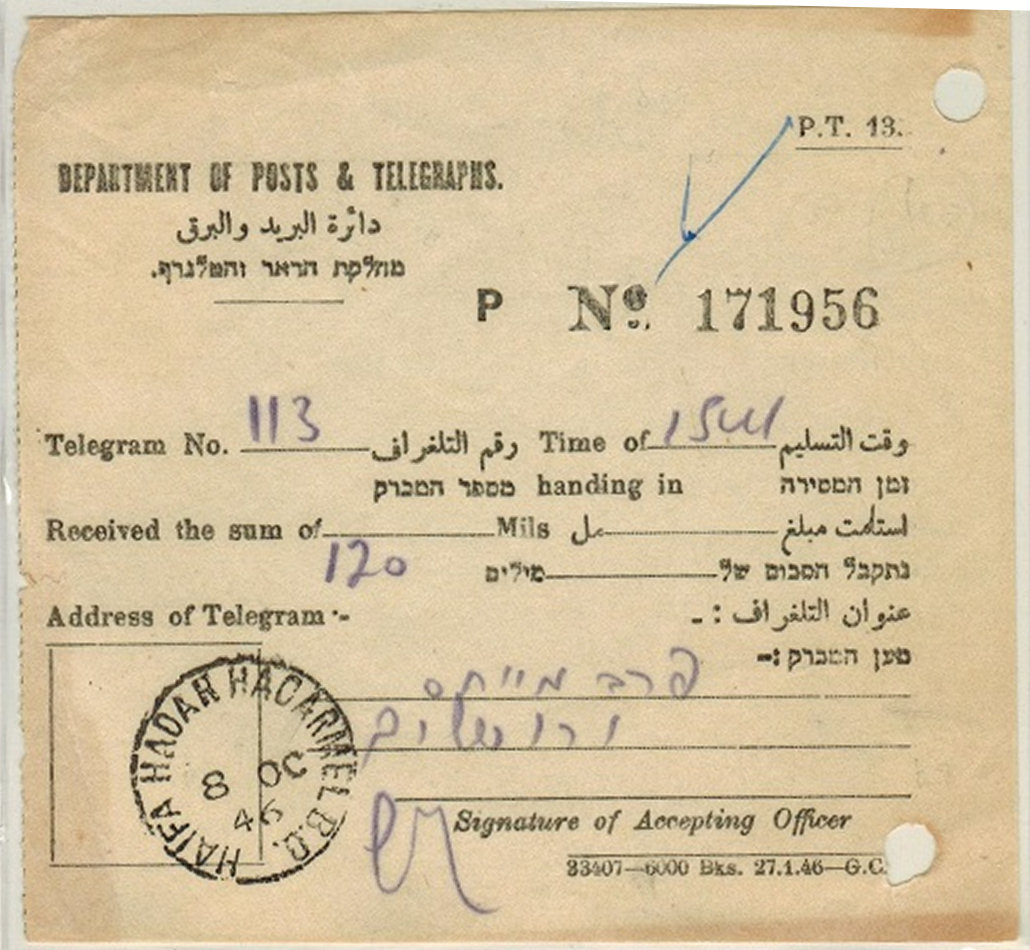 P.T. 13.
DEPARTMENT OF POSTS & TELEGRAPHS.
دائرة البريد والبرق
מחלקת הדאר והטלגרף.
P No. 171956
Telegram No. 113 رقم التلغراف Time of وقت التسليم
מספר המברק handing in זמן המסירה
Received the sum of Mils مل استلمت مبلغ
120 מילים נתקבל הסכום של
Address of Telegram :- عنوان التلغراف :-
מען המברק :-
ירושלים
HAIFA HADAR HACARMEL B.O.
8 OC
46
Signature of Accepting Officer
33407—6000 Bks. 27.1.46—G.C.